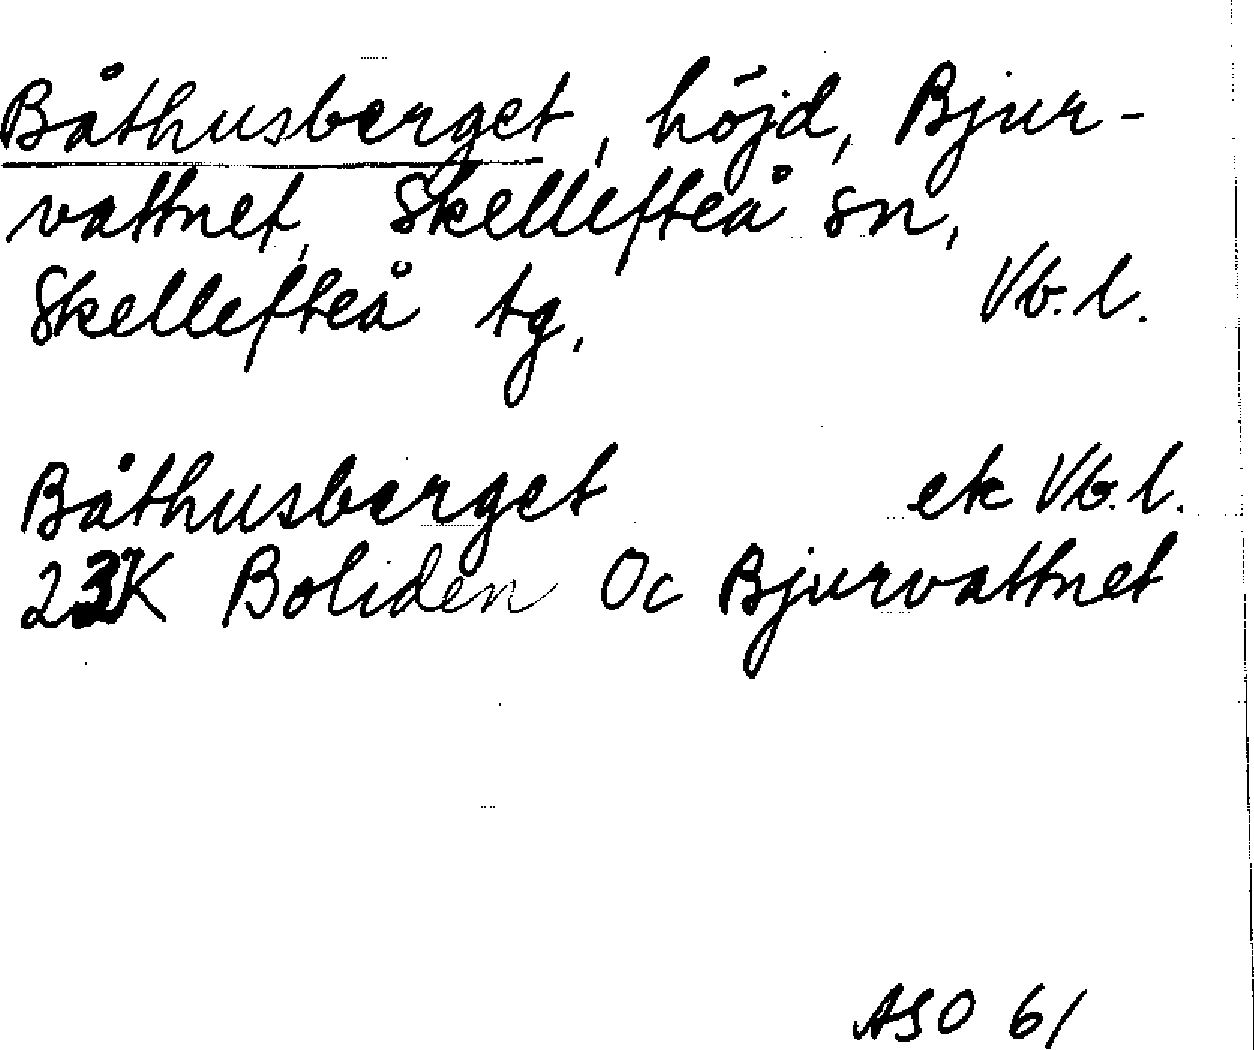 Båthusberget, höjd, Bjur-
vattnet, Skellefteå sn,
Skellefteå tg, Vb. l.
Båthusberget ek Vb. l.
23K Boliden Oc Bjurvattnet
ASO 61